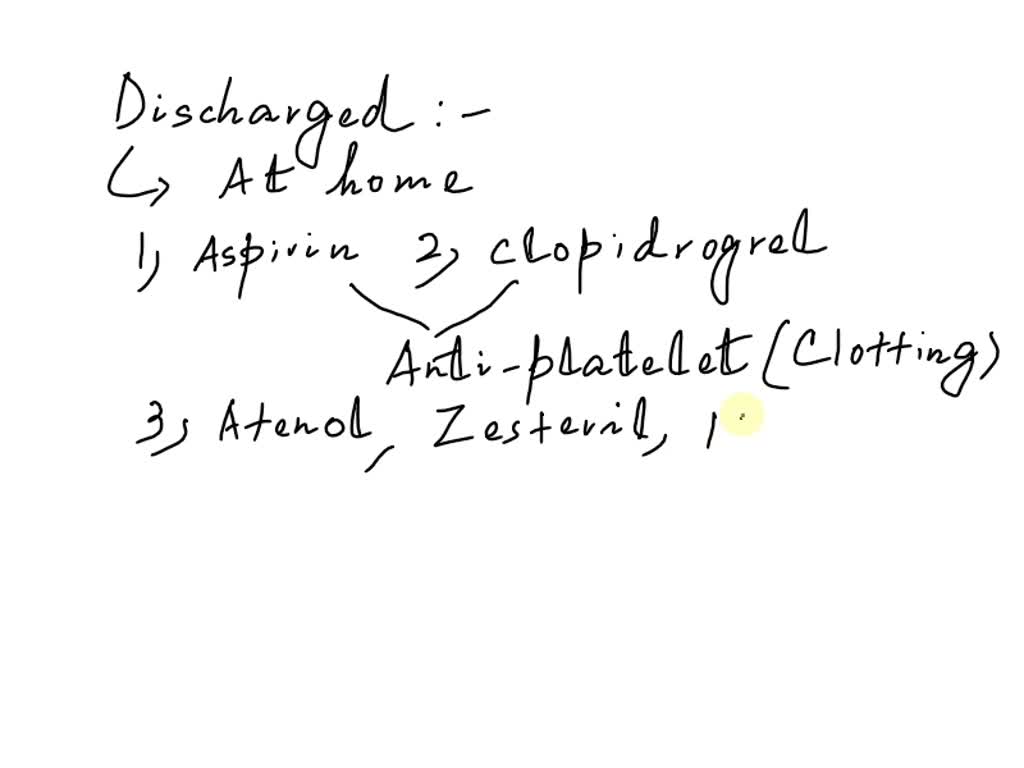 Discharged :-
↳ At home
1, Aspirin 2, Clopidrogrel
Anti-platelet (Clotting)
3, Atenol, Zesteril,